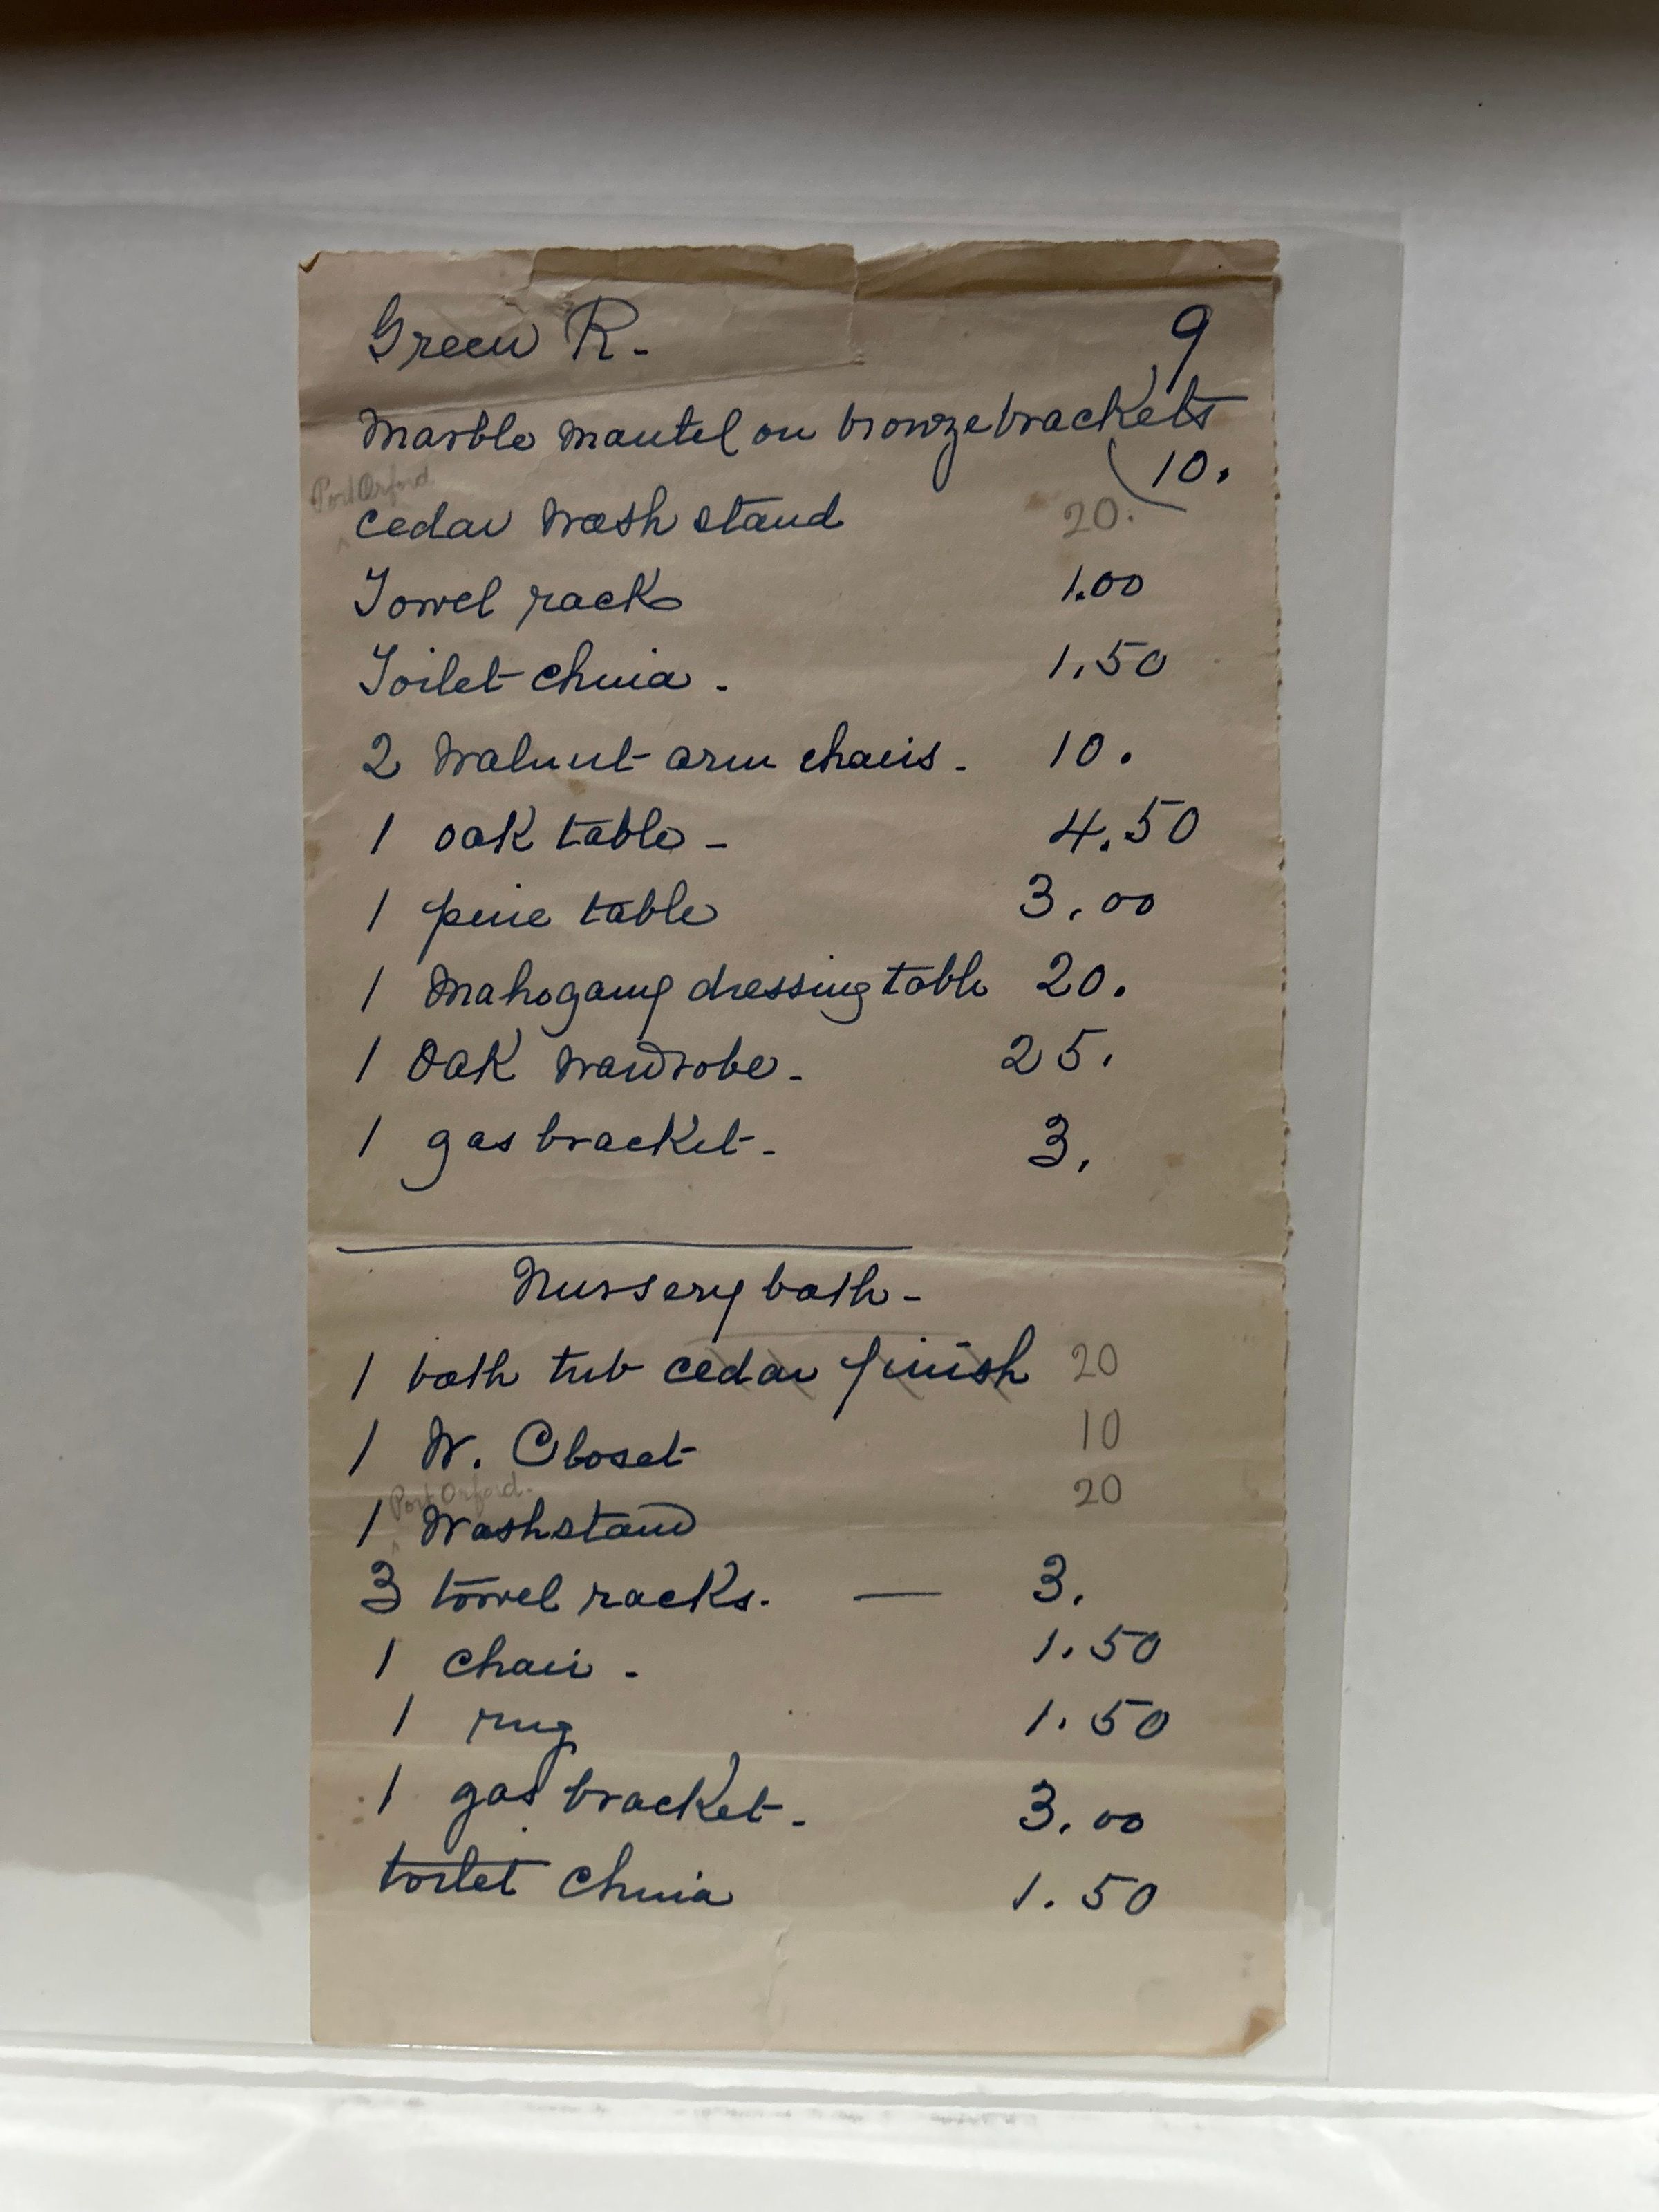 Green R. 9
Marble mantel on bronze brackets
10.
Port Orford
cedar wash stand 20.
Towel rack 1.00
Toilet china. 1.50
2 walnut arm chairs. 10.
1 oak table - 4.50
1 pine table 3.00
1 Mahogany dressing table 20.
1 Oak wardrobe. 25.
1 gas bracket. 3.
Nursery bath -
1 bath tub cedar finish 20
1 W. Closet 10
Port Orford.
1 Washstand 20
3 towel racks. — 3.
1 chair - 1.50
1 rug 1.50
1 gas bracket. 3.00
toilet china 1.50